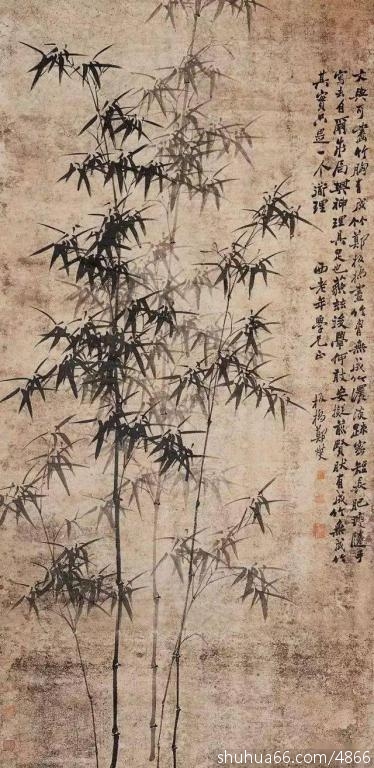 文與可畫竹胸有成竹鄭板橋畫竹胸無成竹濃淡疎密短長肥瘦隨手
寫去自爾成局其神理具足也藐茲後學何敢妄擬前賢然有成竹無成竹
其實只是一个道理 酉老年學兄正 板橋鄭燮
shuhua66.com/4866